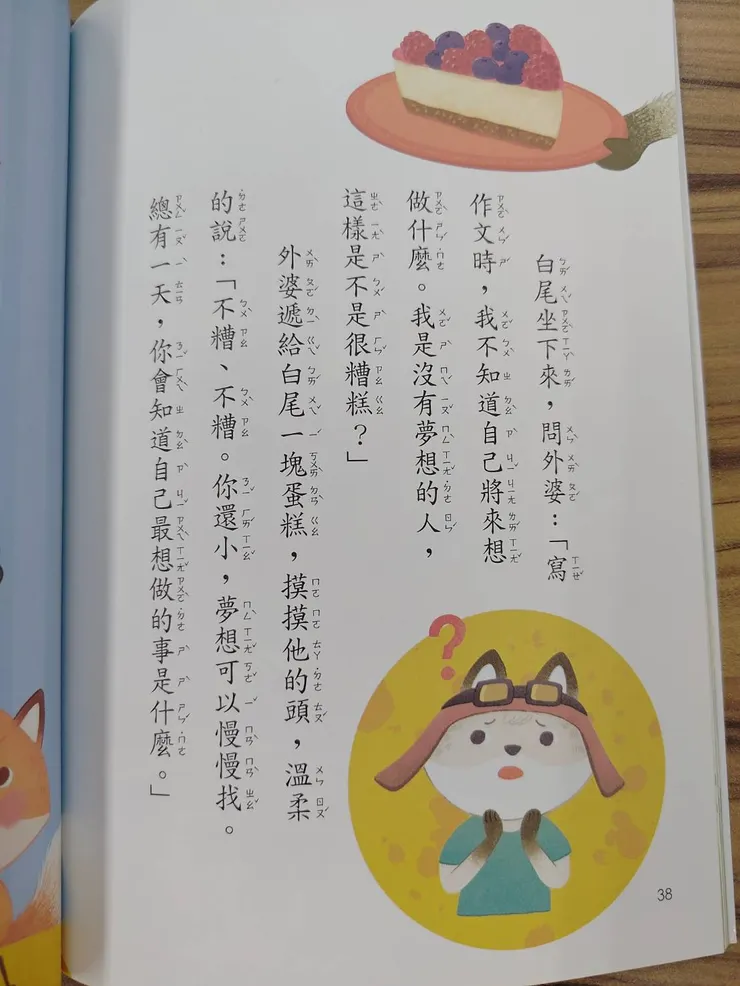 白尾坐下來，問外婆：「寫
作文時，我不知道自己將來想
做什麼。我是沒有夢想的人，
這樣是不是很糟糕？」
外婆遞給白尾一塊蛋糕，摸摸他的頭，溫柔
的說：「不糟、不糟。你還小，夢想可以慢慢找。
總有一天，你會知道自己最想做的事是什麼。」
?
38